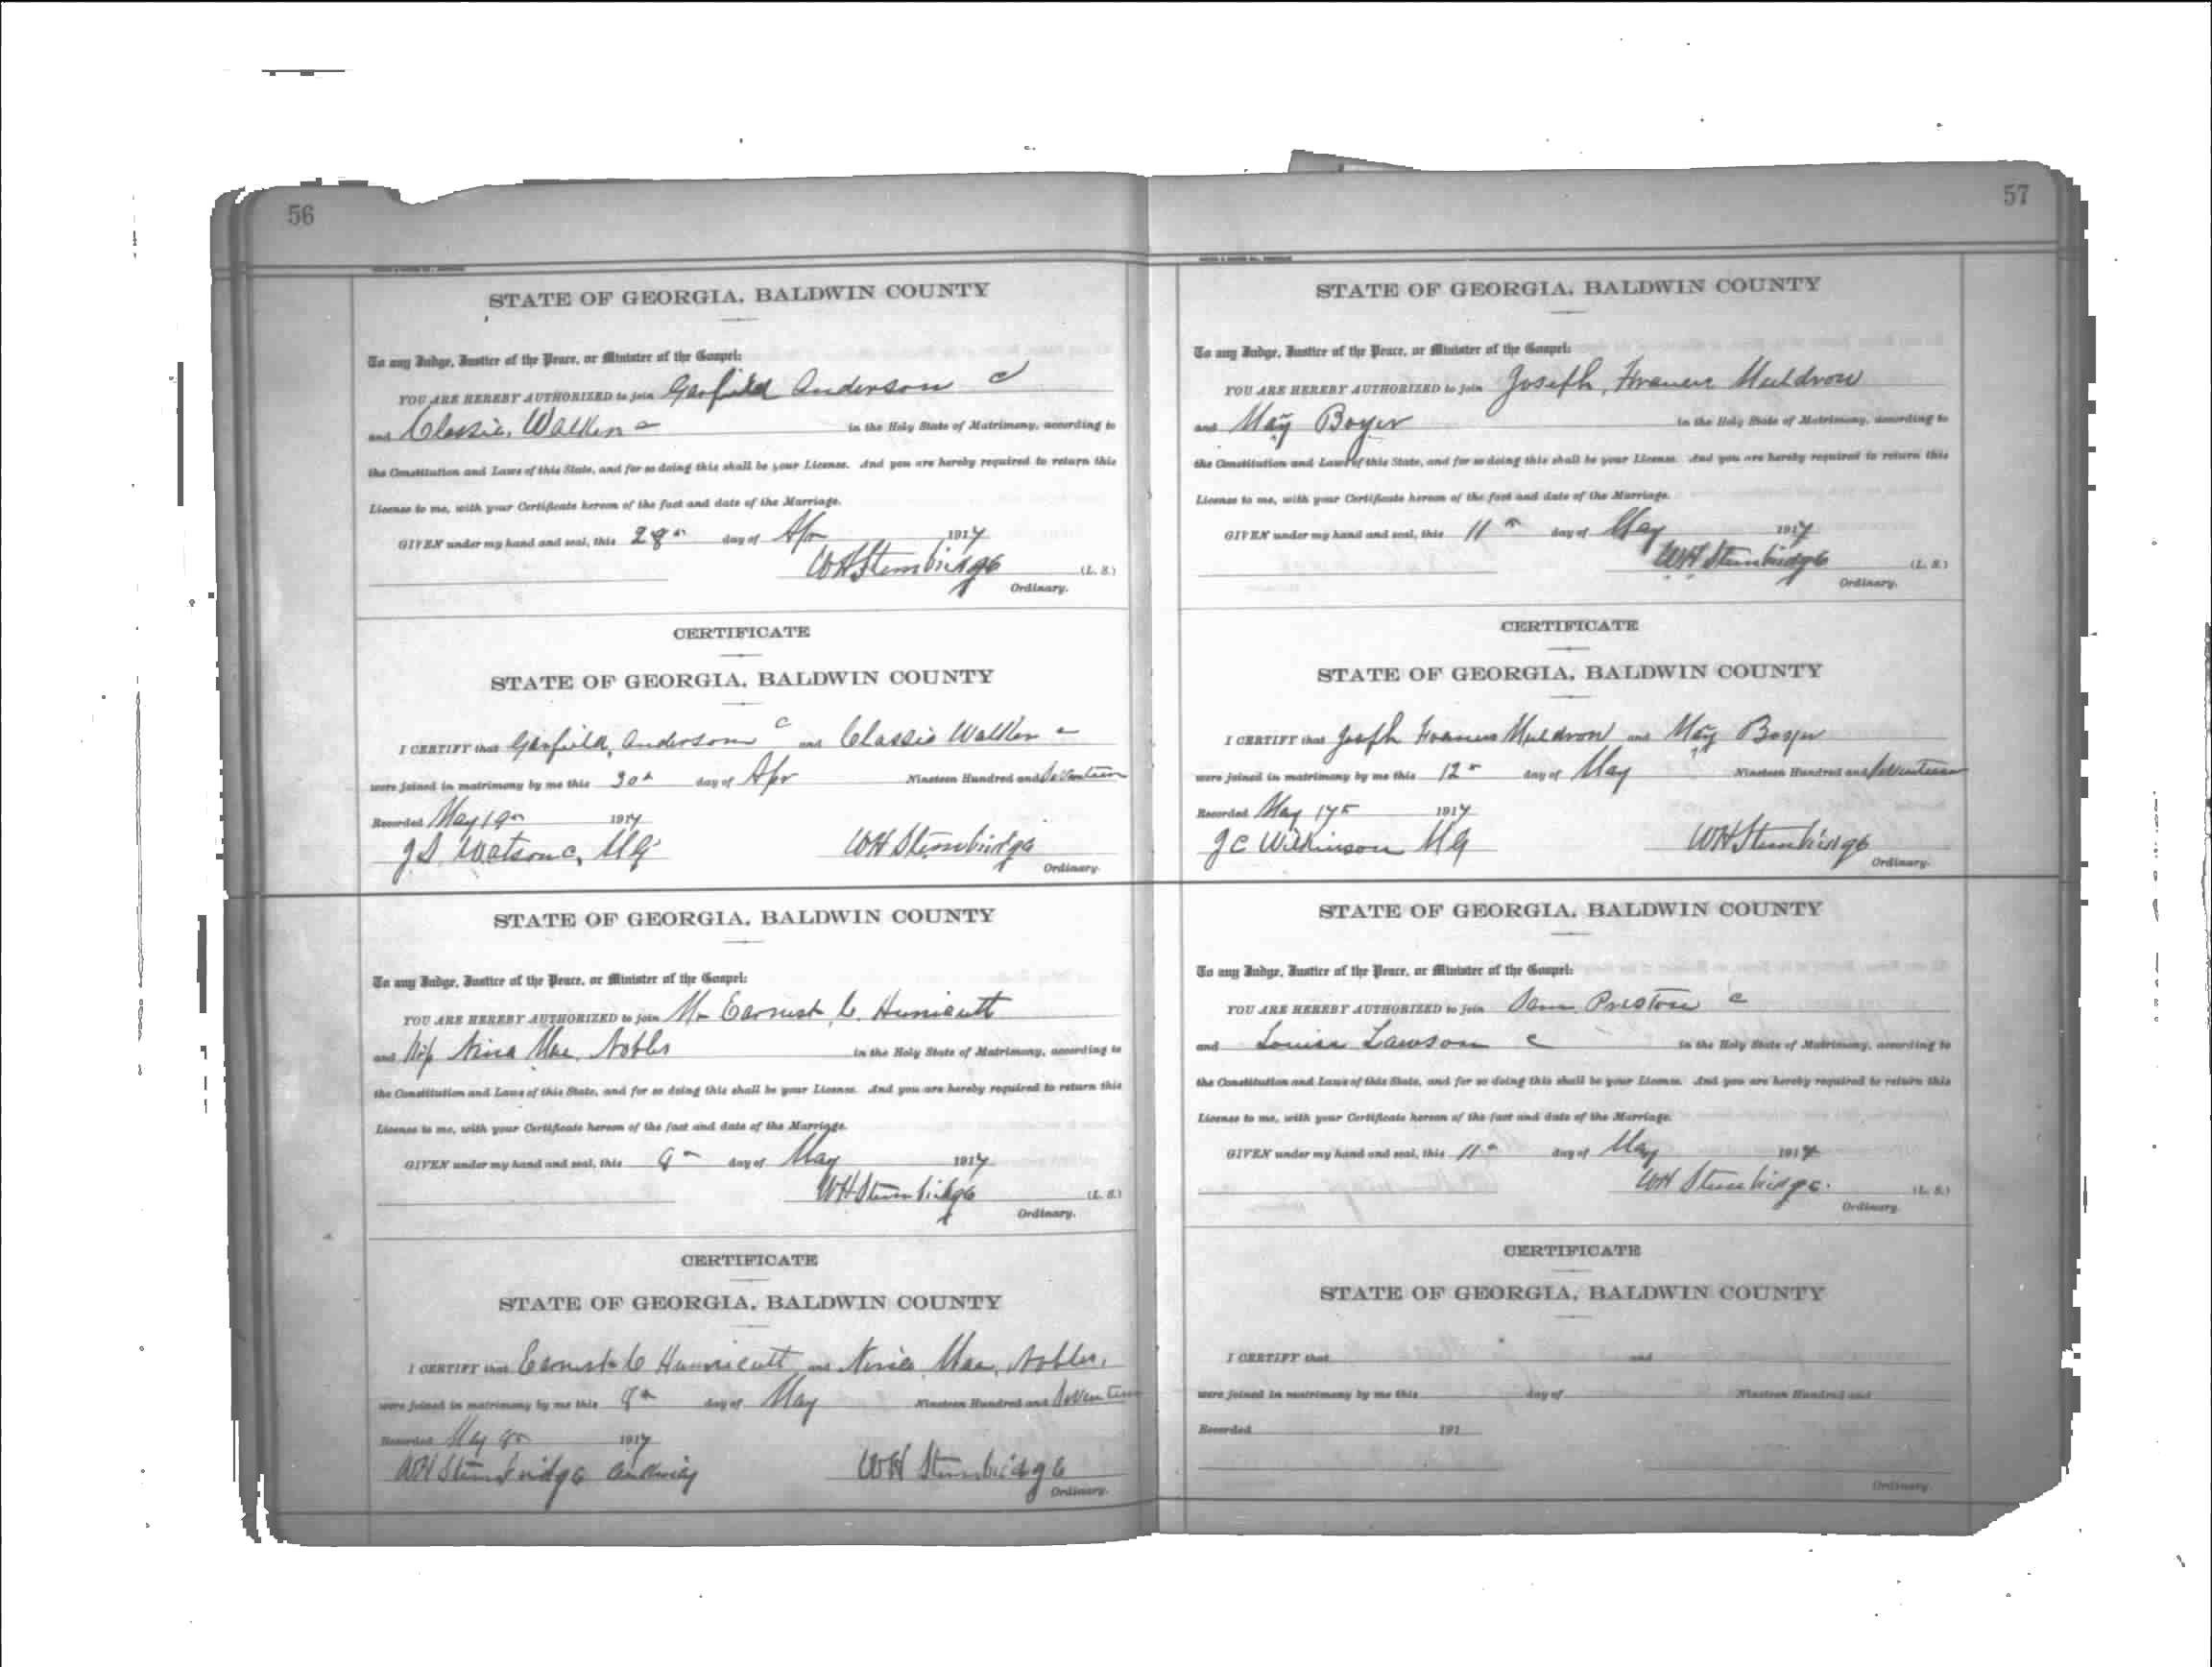 56
STATE OF GEORGIA, BALDWIN COUNTY
To any Judge, Justice of the Peace, or Minister of the Gospel:
YOU ARE HEREBY AUTHORIZED to join Garfield Anderson c
and Classie, Walker c in the Holy State of Matrimony, according to
the Constitution and Laws of this State, and for so doing this shall be your License. And you are hereby required to return this
License to me, with your Certificate hereon of the fact and date of the Marriage.
GIVEN under my hand and seal, this 28th day of Apr 1917
WH Stembridge (L. S.)
Ordinary.
CERTIFICATE
STATE OF GEORGIA, BALDWIN COUNTY
I CERTIFY that Garfield, Anderson c and Classie Walker c
were joined in matrimony by me this 30th day of Apr Nineteen Hundred and Seventeen
Recorded May 1917
J S Watson c, MG WH Stembridge
Ordinary.
STATE OF GEORGIA, BALDWIN COUNTY
To any Judge, Justice of the Peace, or Minister of the Gospel:
YOU ARE HEREBY AUTHORIZED to join Mr Earnest C. Hunicutt
and Miss Nina Mae, Nobles in the Holy State of Matrimony, according to
the Constitution and Laws of this State, and for so doing this shall be your License. And you are hereby required to return this
License to me, with your Certificate hereon of the fact and date of the Marriage.
GIVEN under my hand and seal, this day of May 1917
WH Stembridge (L. S.)
Ordinary.
CERTIFICATE
STATE OF GEORGIA, BALDWIN COUNTY
I CERTIFY that Earnest C Hunnicutt and Nina Mae, Nobles,
were joined in matrimony by me this day of May Nineteen Hundred and Seventeen
Recorded May 1917
WH Stembridge Ordinary WH Stembridge
Ordinary.
57
STATE OF GEORGIA, BALDWIN COUNTY
To any Judge, Justice of the Peace, or Minister of the Gospel:
YOU ARE HEREBY AUTHORIZED to join Joseph, Francis Muldrow
and May Boyer in the Holy State of Matrimony, according to
the Constitution and Laws of this State, and for so doing this shall be your License. And you are hereby required to return this
License to me, with your Certificate hereon of the fact and date of the Marriage.
GIVEN under my hand and seal, this 11th day of May 1917
WH Stembridge (L. S.)
Ordinary.
CERTIFICATE
STATE OF GEORGIA, BALDWIN COUNTY
I CERTIFY that Joseph Francis Muldrow and May Boyer
were joined in matrimony by me this 12th day of May Nineteen Hundred and Seventeen
Recorded May 17th 1917
J C Wilkinson MG WH Stembridge
Ordinary.
STATE OF GEORGIA, BALDWIN COUNTY
To any Judge, Justice of the Peace, or Minister of the Gospel:
YOU ARE HEREBY AUTHORIZED to join Sam Preston c
and Louisa Lawson c in the Holy State of Matrimony, according to
the Constitution and Laws of this State, and for so doing this shall be your License. And you are hereby required to return this
License to me, with your Certificate hereon of the fact and date of the Marriage.
GIVEN under my hand and seal, this 11th day of May 1917
WH Stembridge. (L. S.)
Ordinary.
CERTIFICATE
STATE OF GEORGIA, BALDWIN COUNTY
I CERTIFY that and
were joined in matrimony by me this day of Nineteen Hundred and
Recorded 191
Ordinary.